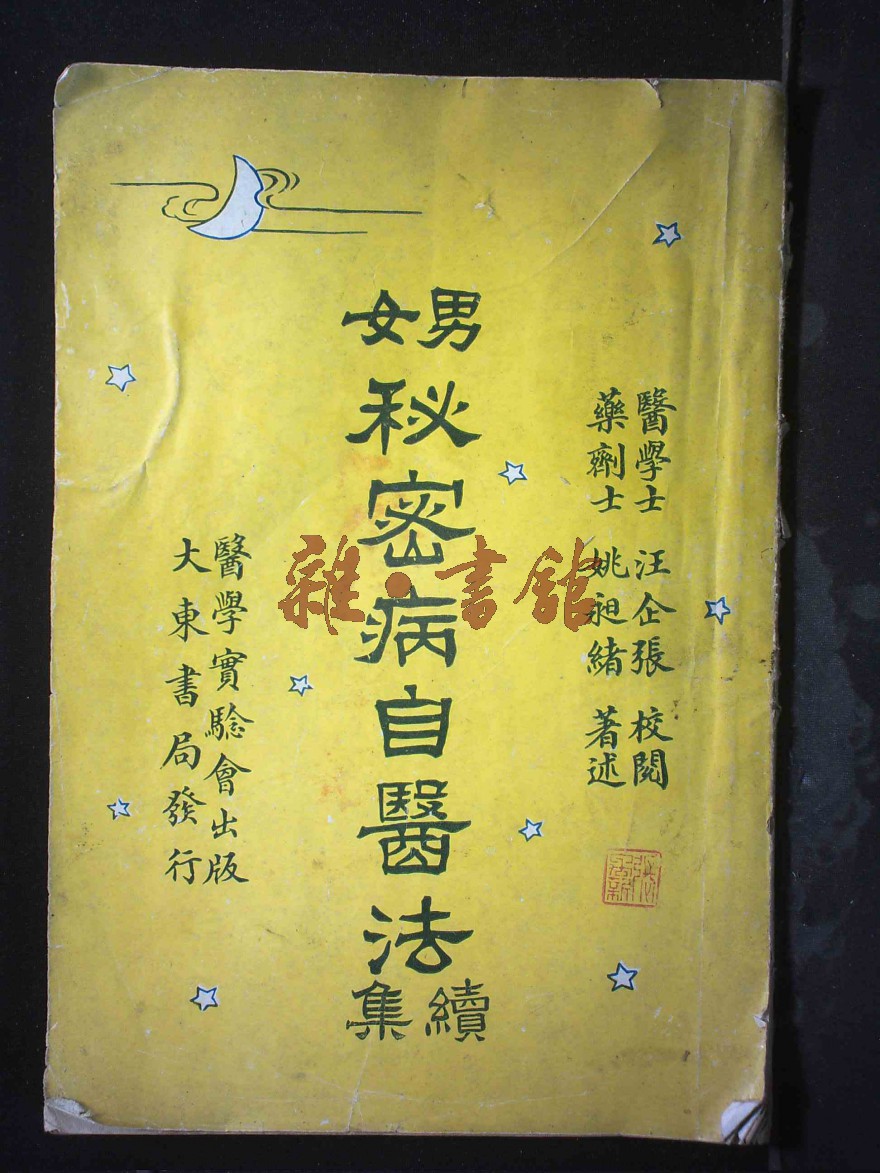 醫學士 汪企張 校閱
藥劑士 姚昶緒 著述
男女
秘密病自醫法
續集
醫學實驗會出版
大東書局發行
雜·書館